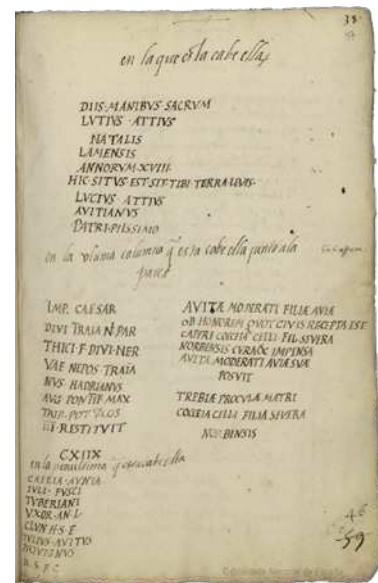 38
en la que esta cabe ella
DIIS·MANIBVS SACRVM
LVTIVS·ATTIVS
NATALIS
LAMENSIS
ANNORVM·XVIII·
HIC·SITVS·EST·SIT·TIBI·TERRA·LEVIS·
LVCIVS ATTIVS
AVITIANVS
PATRI·PIISSIMO
en la vltima columna q̃ esta cabe ella junto a la
IMP. CAESAR
DIVI TRAIA N̄ PAR
THICI·F·DIVI·NER
VAE NEPOS·TRAIA
NVS HADRIANVS
AVG PONTIF MAX
TRIB·POT·COS
III RESTITVIT
CXIIX
AVITÆ MODERATI FILIÆ AVIÆ
OB HONOREM QVOT CIVIS RECEPTA EST
COCCEIA CELLI FIL·SIVERA
NORBENSIS CVRA IMPENSA
AVITÆ MODERATI AVIÆ SVÆ
POSVIT
TREBIÆ PROCVLÆ MATRI
COCCEIA CILLI FILIA SIVERA
NORBENSIS
en la penultima q̃ esta cabe ella
IVLI·FVSCI
TVBERIANI
VXOR·AN·L·
CLVN·H·S·E
IVLIVS·AVITVS
S·F·C
46
59
Biblioteca Nacional de España